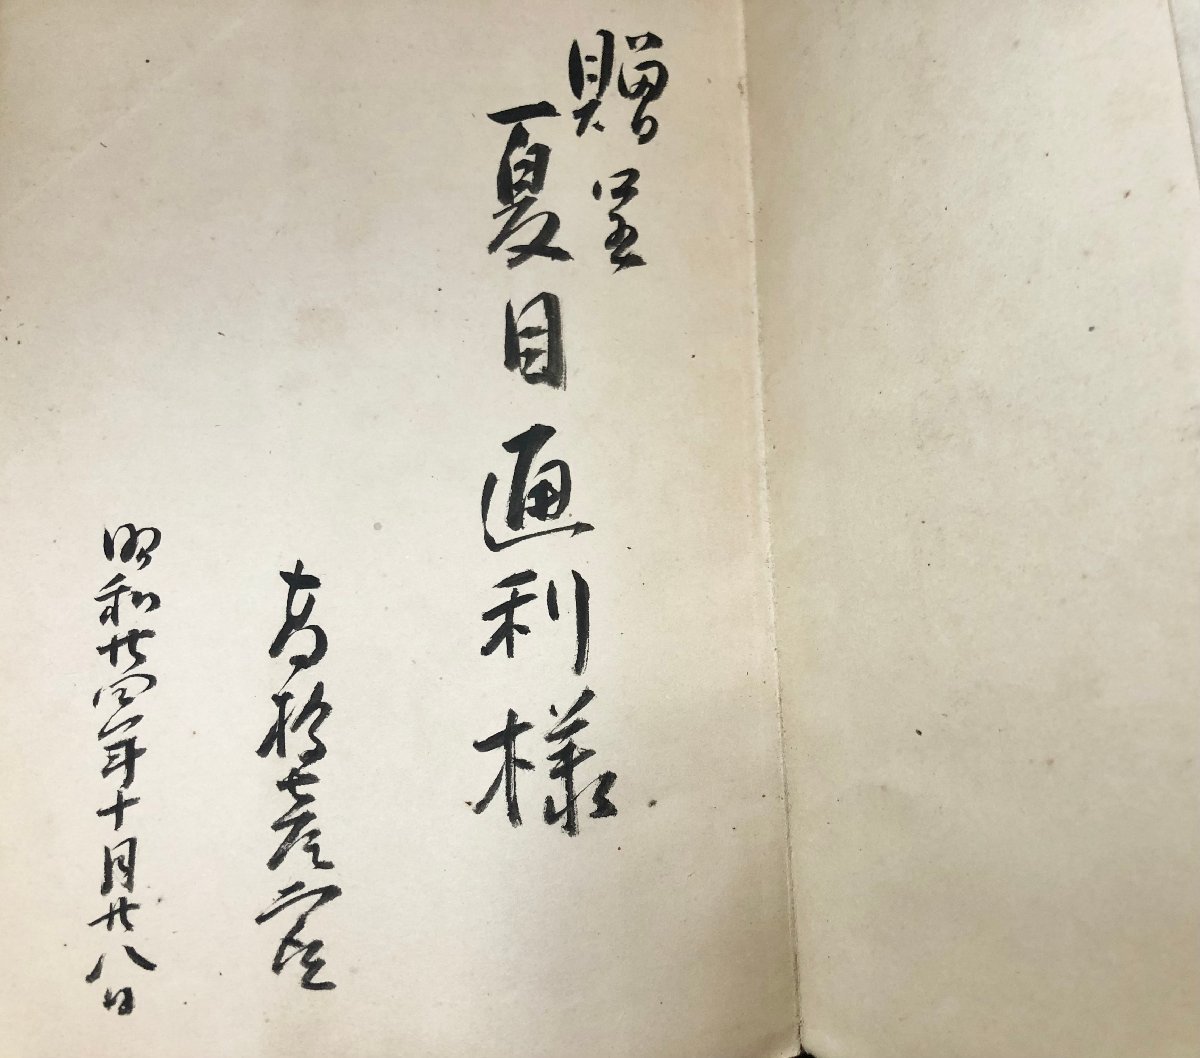 贈呈
夏目通利様
高橋
昭和廿四年十月廿八日